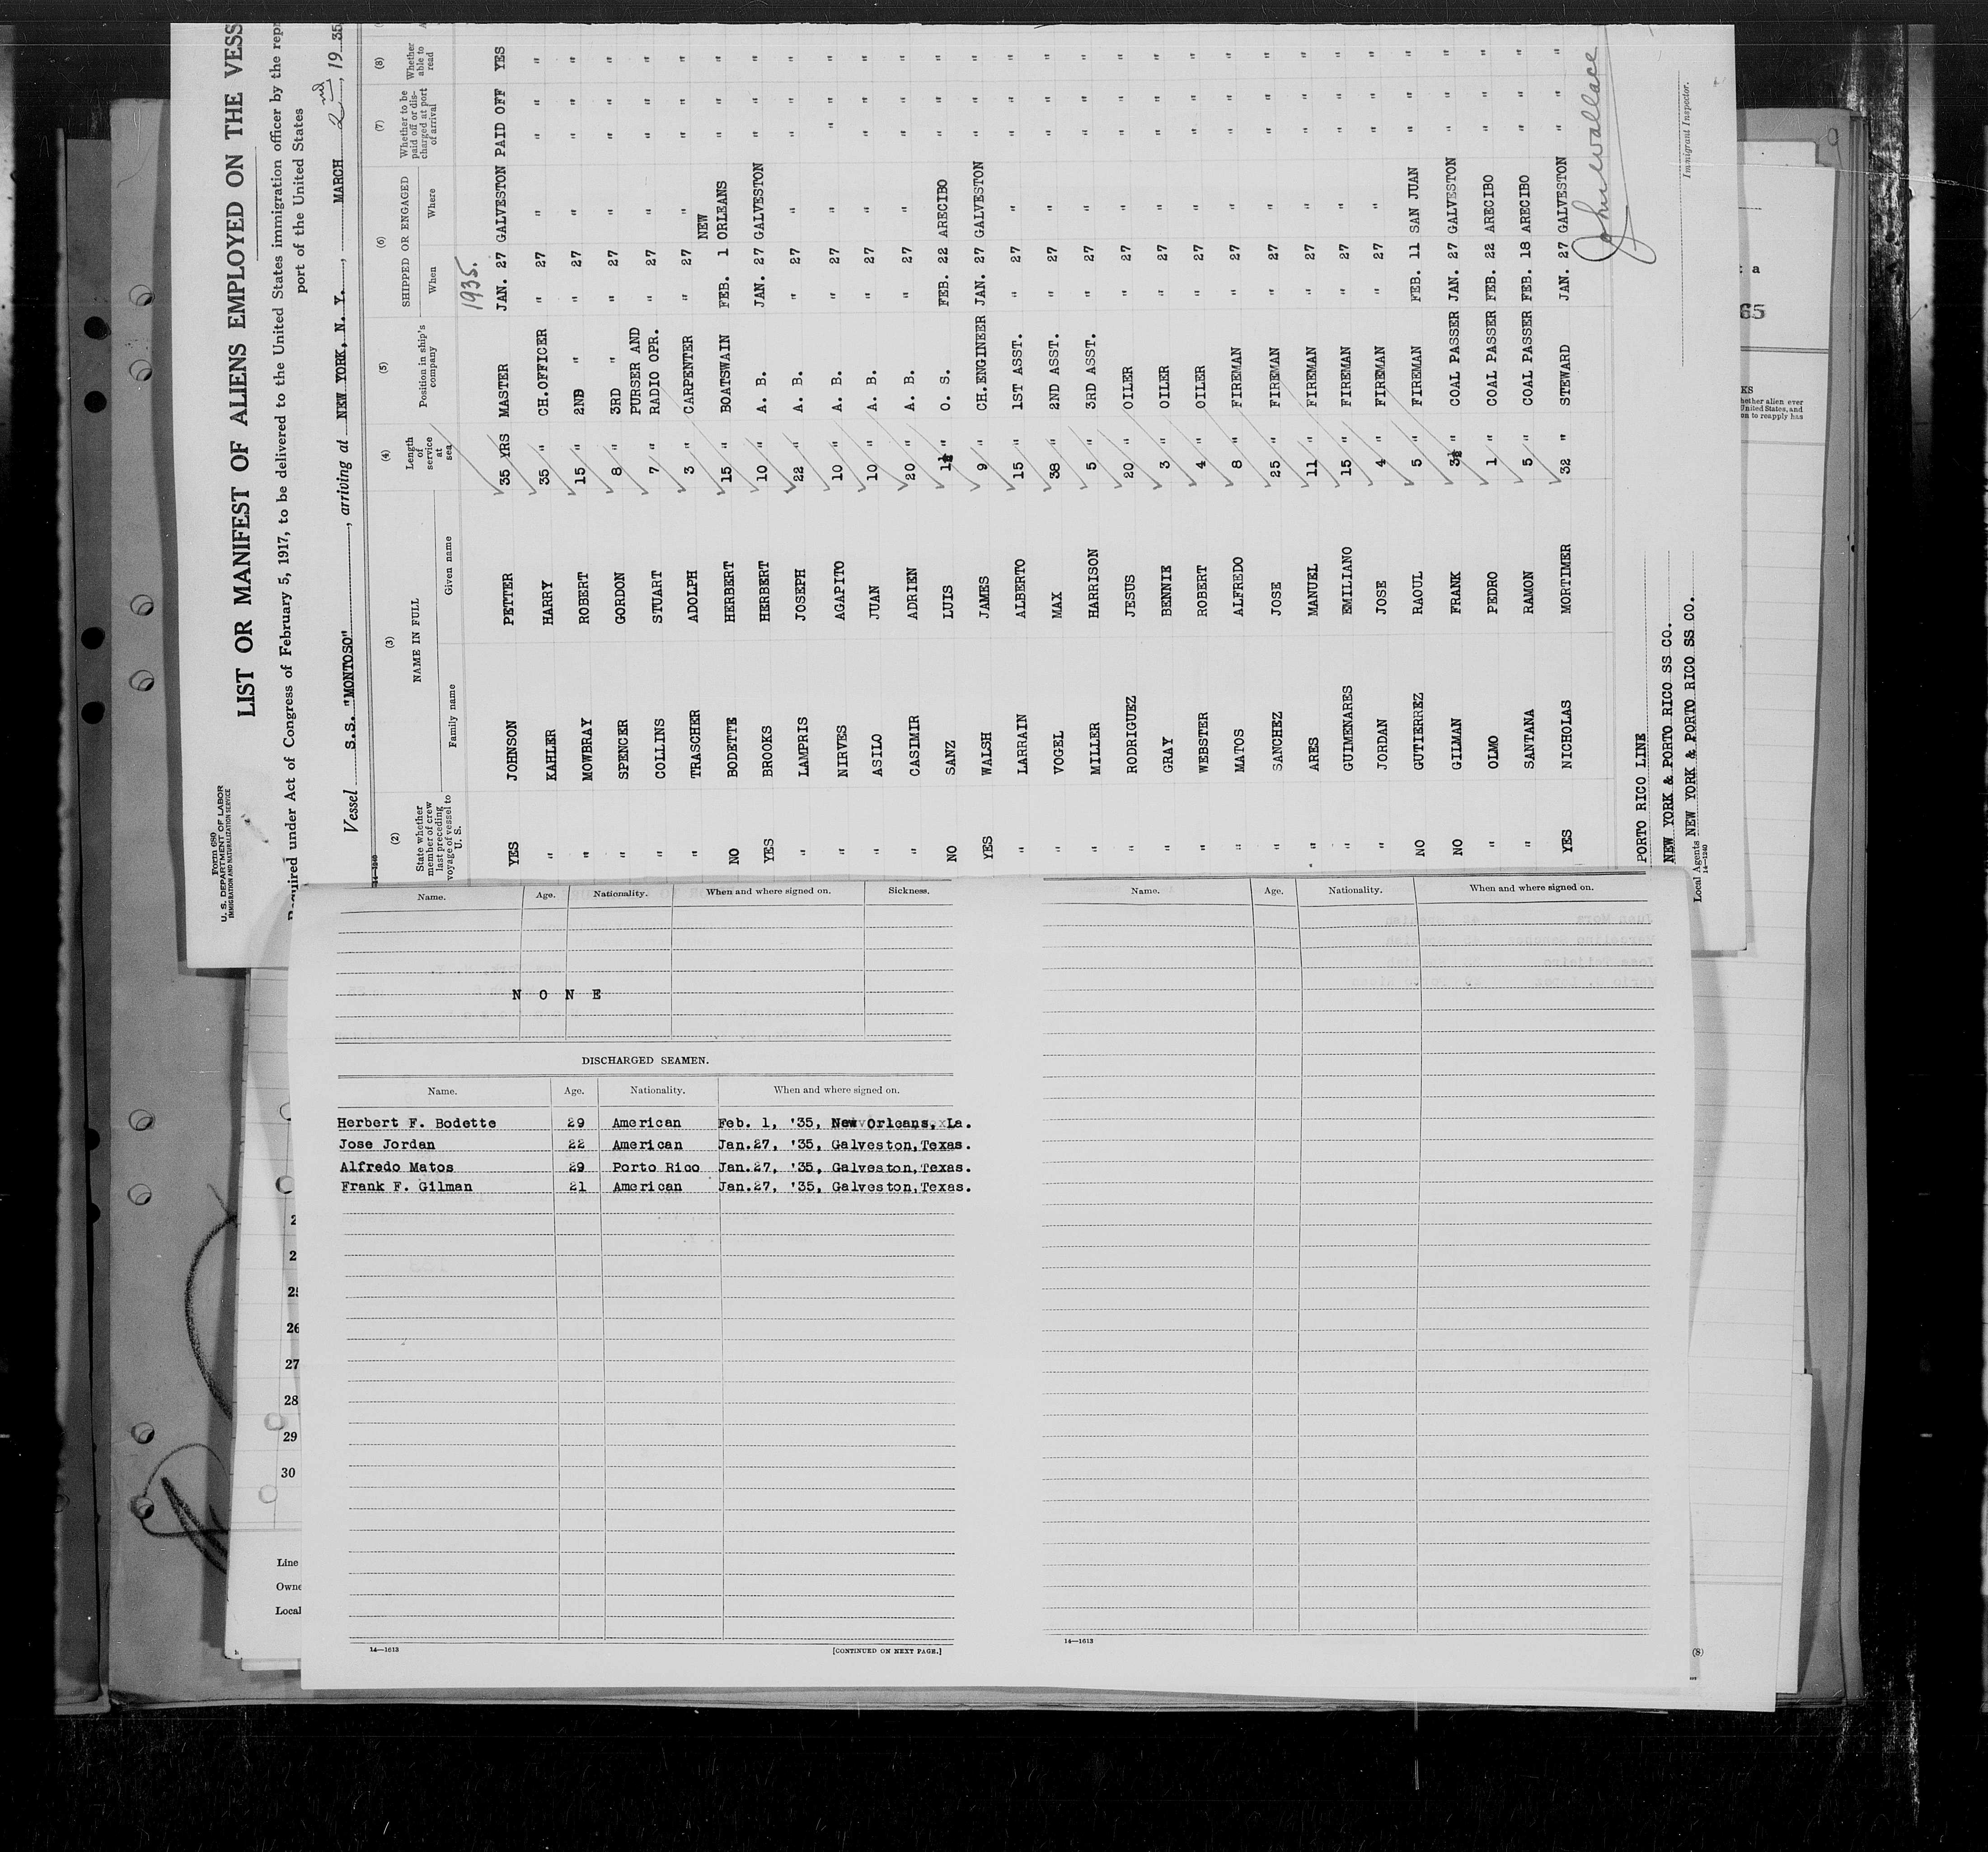 Form 680
U. S. DEPARTMENT OF LABOR
IMMIGRATION AND NATURALIZATION SERVICE
LIST OR MANIFEST OF ALIENS EMPLOYED ON THE VESS
Required under Act of Congress of February 5, 1917, to be delivered to the United States immigration officer by the repr
port of the United States
Vessel S.S. "MONTOSO", arriving at NEW YORK, N. Y., MARCH 2nd, 1935
14-1240
(2) (3) (4) (5) (6) (7) (8)
State whether member of crew last preceding voyage of vessel to U. S. NAME IN FULL Family name Given name Length of service at sea Position in ship's company SHIPPED OR ENGAGED When Where Whether to be paid off or discharged at port of arrival Whether able to read
1935.
YES JOHNSON PETTER 35 YRS MASTER JAN. 27 GALVESTON PAID OFF YES
" KAHLER HARRY 35 " CH.OFFICER " 27 " " " "
" MOWBRAY ROBERT 15 " 2ND " " 27 " " " "
" SPENCER GORDON 8 " 3RD " " 27 " " " "
" COLLINS STUART 7 " PURSER AND RADIO OPR. " 27 " " " "
" TRASCHER ADOLPH 3 " CARPENTER " 27 " " " "
NO BODETTE HERBERT 15 " BOATSWAIN FEB. 1 NEW ORLEANS " " "
YES BROOKS HERBERT 10 " A. B. JAN. 27 GALVESTON " " "
" LAMPRIS JOSEPH 22 " A. B. " 27 " " " "
" NIRVES AGAPITO 10 " A. B. " 27 " " " "
" ASILO JUAN 10 " A. B. " 27 " " " "
" CASIMIR ADRIEN 20 " A. B. " 27 " " " "
NO SANZ LUIS 1½ " O. S. FEB. 22 ARECIBO " " "
YES WALSH JAMES 9 " CH.ENGINEER JAN. 27 GALVESTON " " "
" LARRAIN ALBERTO 15 " 1ST ASST. " 27 " " " "
" VOGEL MAX 38 " 2ND ASST. " 27 " " " "
" MILLER HARRISON 5 " 3RD ASST. " 27 " " " "
" RODRIGUEZ JESUS 20 " OILER " 27 " " " "
" GRAY BENNIE 3 " OILER " 27 " " " "
" WEBSTER ROBERT 4 " OILER " 27 " " " "
" MATOS ALFREDO 8 " FIREMAN " 27 " " " "
" SANCHEZ JOSE 25 " FIREMAN " 27 " " " "
" ARES MANUEL 11 " FIREMAN " 27 " " " "
" GUIMENARES EMILIANO 15 " FIREMAN " 27 " " " "
" JORDAN JOSE 4 " FIREMAN " 27 " " " "
NO GUTIERREZ RAOUL 5 " FIREMAN FEB. 11 SAN JUAN " " "
NO GILMAN FRANK 3½ " COAL PASSER JAN. 27 GALVESTON " " "
" OLMO PEDRO 1 " COAL PASSER FEB. 22 ARECIBO " " "
" SANTANA RAMON 5 " COAL PASSER FEB. 18 ARECIBO " " "
YES NICHOLAS MORTIMER 32 " STEWARD JAN. 27 GALVESTON " " "
John Wallace
PORTO RICO LINE
NEW YORK & PORTO RICO SS CO.
Local Agents NEW YORK & PORTO RICO SS CO.
14-1240
Immigrant Inspector.
Name. Age. Nationality. When and where signed on. Sickness.
N O N E
DISCHARGED SEAMEN.
Name. Age. Nationality. When and where signed on.
Herbert F. Bodette 29 American Feb. 1, '35, New Orleans, La.
Jose Jordan 22 American Jan.27, '35, Galveston,Texas.
Alfredo Matos 29 Porto Rico Jan.27, '35, Galveston,Texas.
Frank F. Gilman 21 American Jan.27, '35, Galveston,Texas.
14—1613 [CONTINUED ON NEXT PAGE.]
Name. Age. Nationality. When and where signed on.
14—1613
26
27
28
29
30
Line
Owne
Local
65
KS
hether alien ever
United States, and
on to reapply has
(8)
9